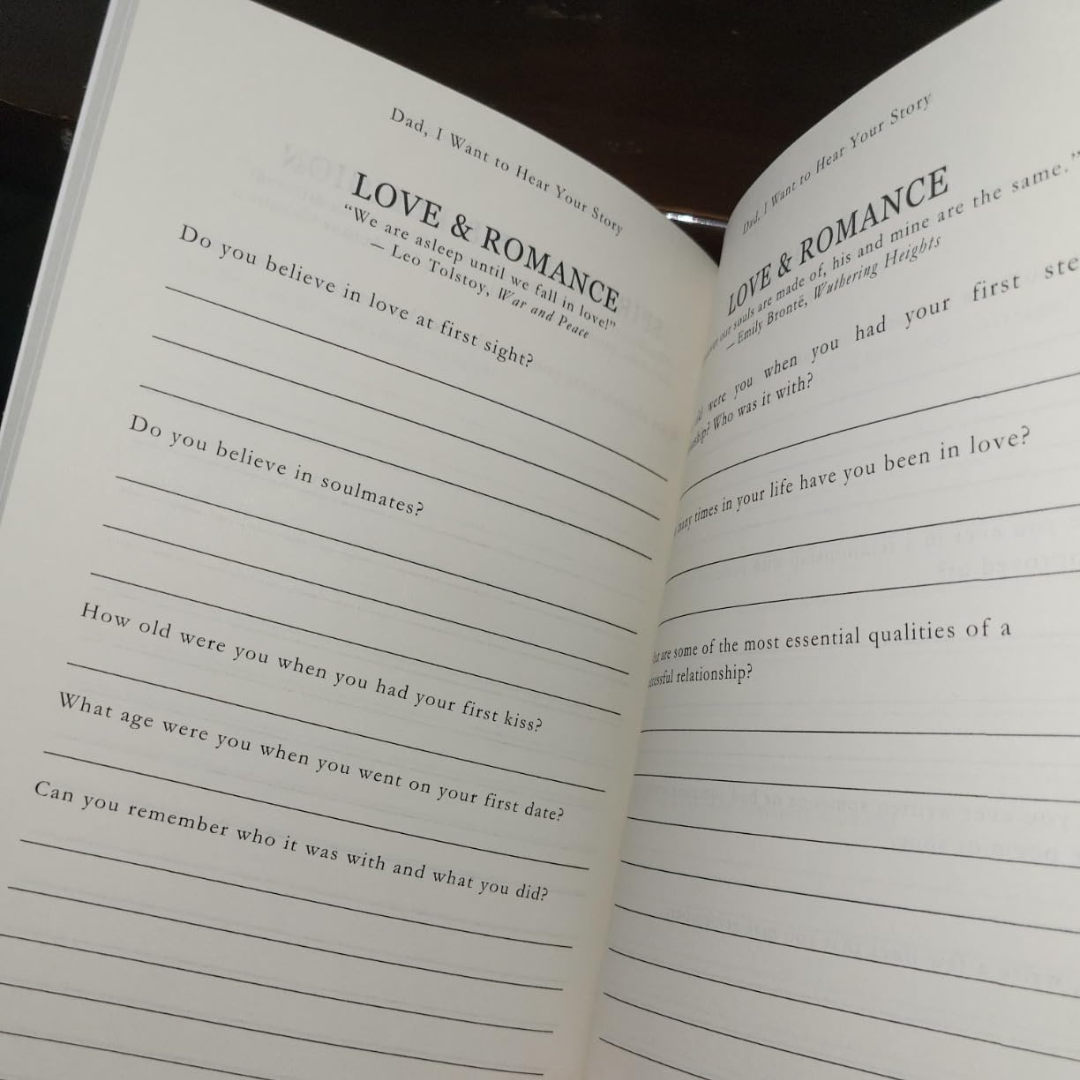 Dad, I Want to Hear Your Story
LOVE & ROMANCE
“We are asleep until we fall in love!”
— Leo Tolstoy, War and Peace
Do you believe in love at first sight?
Do you believe in soulmates?
How old were you when you had your first kiss?
What age were you when you went on your first date?
Can you remember who it was with and what you did?
Dad, I Want to Hear Your Story
LOVE & ROMANCE
our souls are made of, his and mine are the same.”
— Emily Brontë, Wuthering Heights
were you when you had your first ste
Who was it with?
times in your life have you been in love?
are some of the most essential qualities of a
relationship?